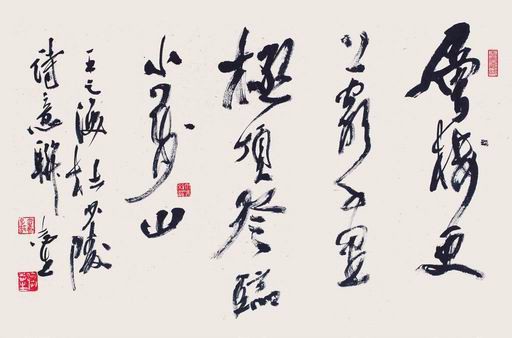 層樓更
上窮千里
極頂登臨
小萬山
王之渙杜少陵
詩意聯